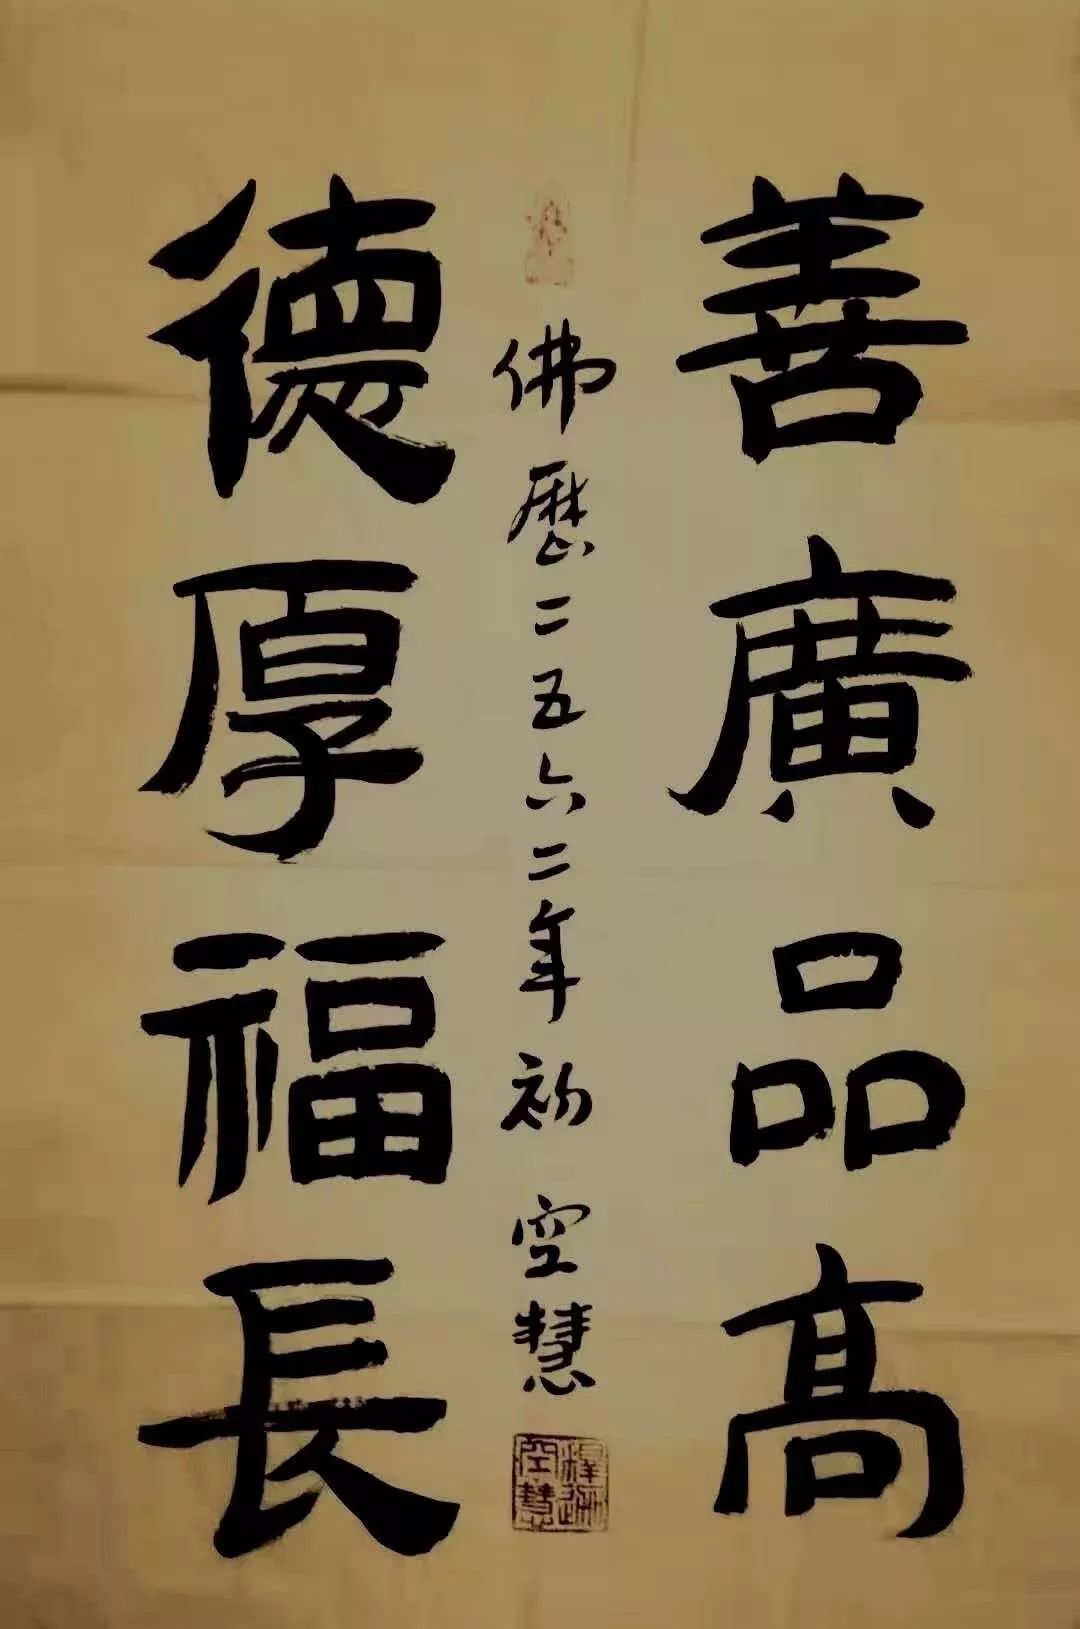 善廣品高
佛歷二五六二年初 空慧
德厚福長
空慧